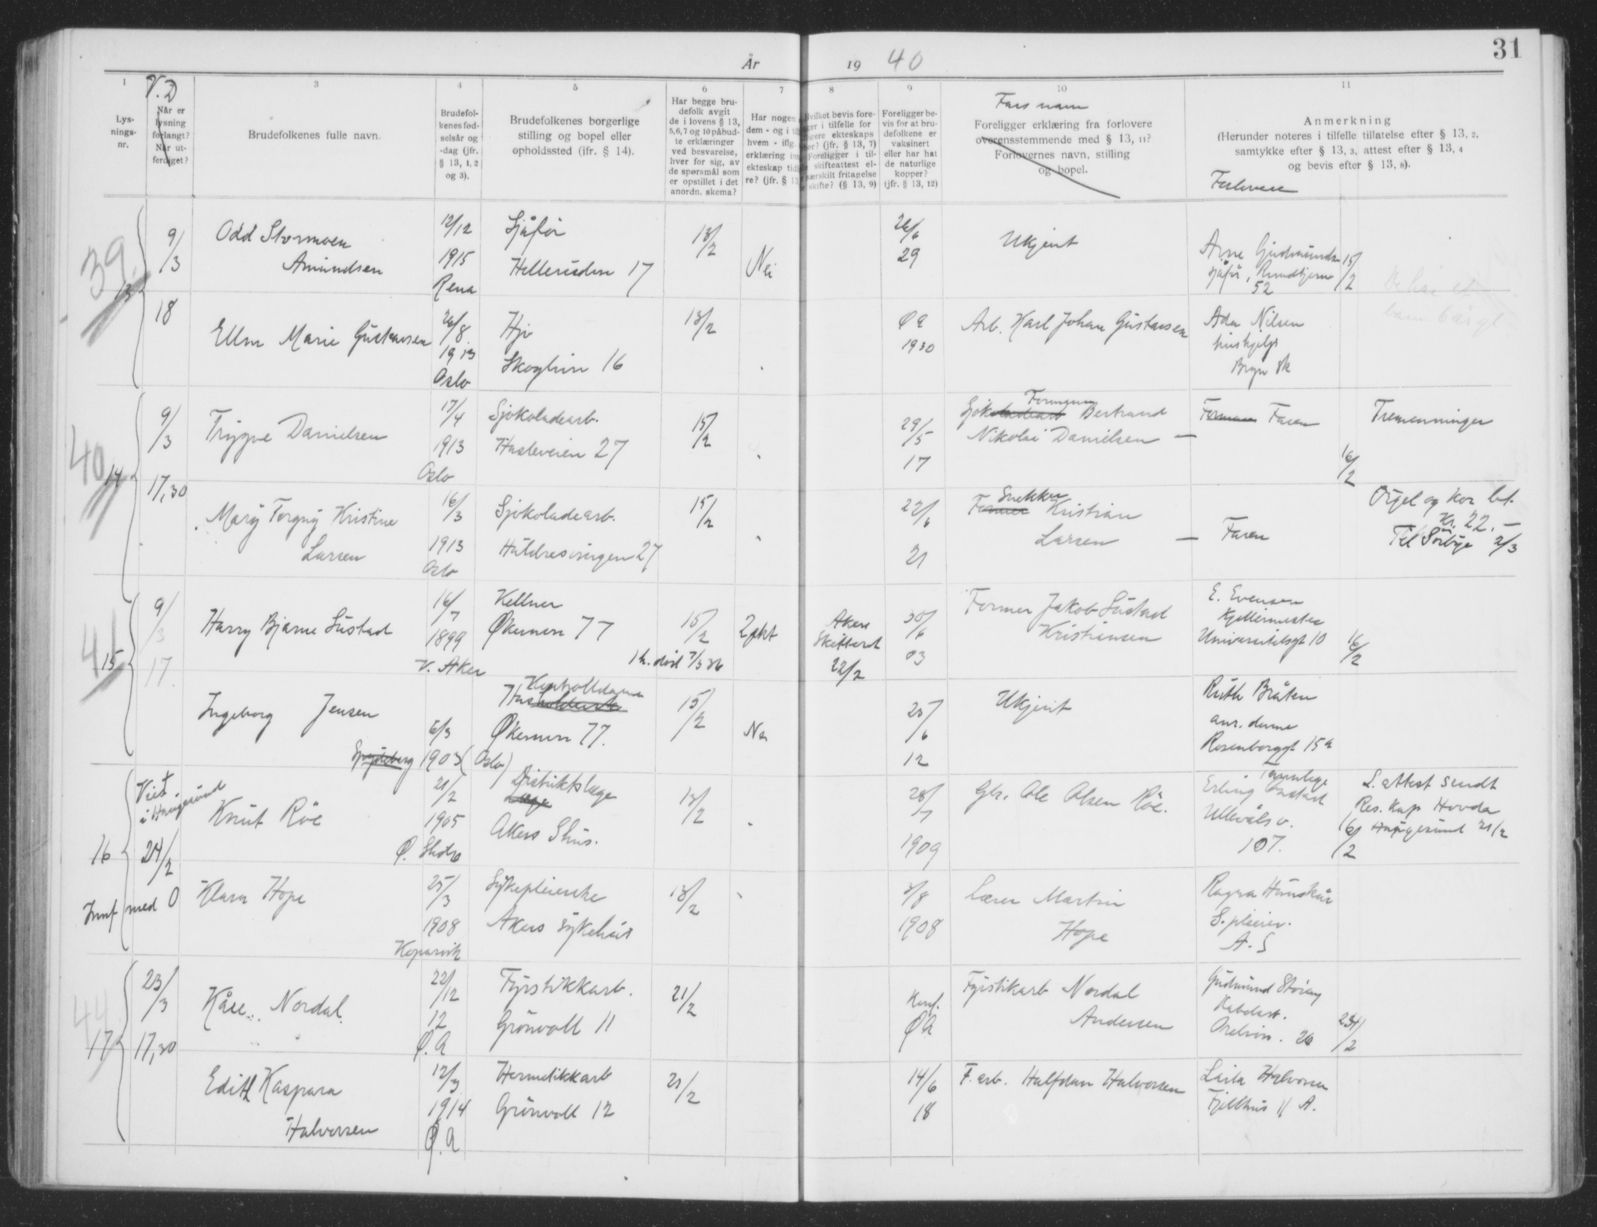 År 19 40
31
1 3 4 5 6 7 8 9 10 11
V.D
Lys-
nings-
nr.
Når er
lysning
forlangt?
Når ut-
ferdiget?
Brudefolkenes fulle navn.
Brudefol-
kenes fød-
selsår og
-dag (jfr.
§ 13, 1, 2
og 3).
Brudefolkenes borgerlige
stilling og bopel eller
opholdssted (jfr. § 14).
Har begge bru-
defolk avgit
de i lovens § 13,
5,6,7 og 10 påbud-
te erklæringer
ved besvarelse,
hver for sig, av
de spørsmål som
er opstillet i det
anordn. skema?
Har nogen
dem - og i
hvem - iflg.
erklæring
ekteskap
re? (jfr. § 13
Hvilket bevis fore-
i tilfelle for
ekteskaps
(jfr. § 13, 7)
Foreligger i til-
skifteattest el-
særskilt fritagelse
skifte? (§ 13, 9)
Foreligger be-
vis for at bru-
defolkene er
vaksinert
eller har hat
de naturlige
kopper?
(jfr. § 13, 12)
Fars navn
Foreligger erklæring fra forlovere
overensstemmende med § 13, 11?
Forlovernes navn, stilling
og bopel.
Anmerkning
(Herunder noteres i tilfelle tillatelse efter § 13, 2,
samtykke efter § 13, 3, attest efter § 13, 4
og bevis efter § 13, 8).
Forlovere
39
9/3
18
Odd Stormoen
Amundsen
12/12
1915
Rena
Sjåfør
Hellerudvn 17
13/2
Nei
26/6
29
Ukjent
Arne Gudmunds
sjåfør,
52
15/2
Ellen Marie Gustavsen
26/8
1913
Oslo
Hji
16
13/2
ØA
1930
Arb. Karl Johan Gustavsen
Ada Nilsen
hushjelp
Bryn
40
14
9/3
17,30
Trygve Danielsen
17/4
1913
Oslo
Sjokoladearb.
Hasleveien 27
15/2
29/5
17
Formann Bertrand
Nikolai Danielsen —
Faren
16/2
Tremenninger
Mary Torgny Kristine
Larsen
16/3
1913
Oslo
Sjokoladearb.
Huldresvingen 27
15/2
22/6
21
Snekker
Former Kristian
Larsen — Faren
Orgel og kor bet.
Kr. 22.—
Til Sørbye 2/3
41
15
9/3
17.
Harry Bjarne Sustad
16/7
1899
V. Aker
Kellner
Økernvn 77
15/2
1 h. død 7/3 36
2 ekt
Akers
Skifteret
22/2
30/6
03
Former Jakob Sustad
Kristiansen
E. Evensen
Kjellermester
Universitetsgt 10
16/2
Ingeborg Jensen
Spydeberg
6/3
1903 (Oslo)
Kontrolldame
Økernvn 77.
15/2
Nei
25/6
12
Ukjent
Ruth Bråten
ans. dame
Rosenborggt 15a
16
Viet
i Haugesund
24/2
Innf med 0
Knut Röe
21/2
1905
Distriktslæge
Læge
Akers Shus.
13/2
28/7
1909
Gb. Ole Olsen Röe.
Tannlege
Erling
Ullevålsv.
107.
16/2
L. attest sendt
Res. kap Hovda
Haugesund 21/2
Klara Hope
25/3
1908
Kopervik
Sykepleierske
Akers sykehus
13/2
3/8
1908
Lærer Martin
Hope
Ragna
S. pleier.
A. S
44
17
23/3
17,30
Kåre Nordal
22/12
12
Ø.A
Fyrstikkarb.
Grönvoll 11
21/2
Konf.
ØA
Fyrstikarb Nordal
Andersen
Gudmund
20
23/2
Edith Kaspara
Halvorsen
12/3
1914
Ø.A
Hermetikkarb
Grönvoll 12
21/2
14/6
18
F. arb. Halfdan Halvorsen
Laila Halvorsen
Fjellhus 11 A.